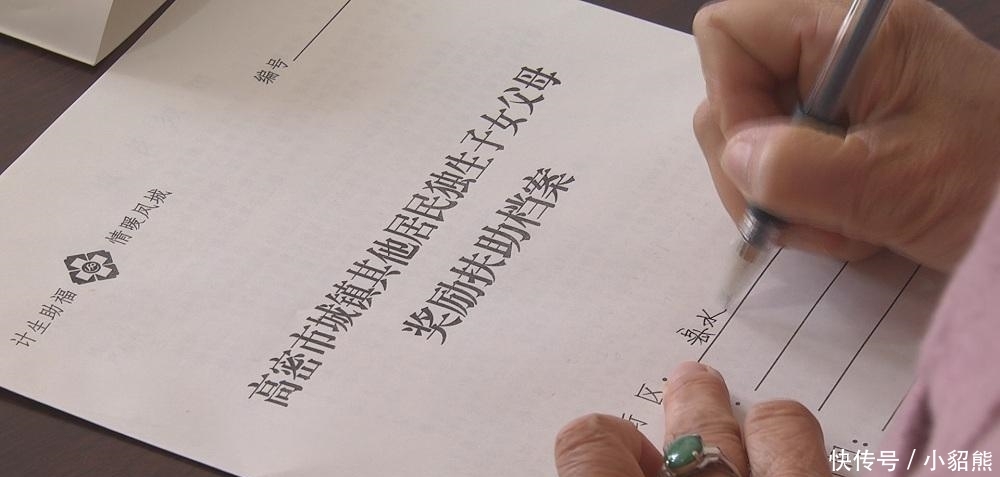 编号
计生助福 情暖凤城
高密市城镇其他居民独生子女父母
奖励扶助档案
区：
快传号 / 小貂熊